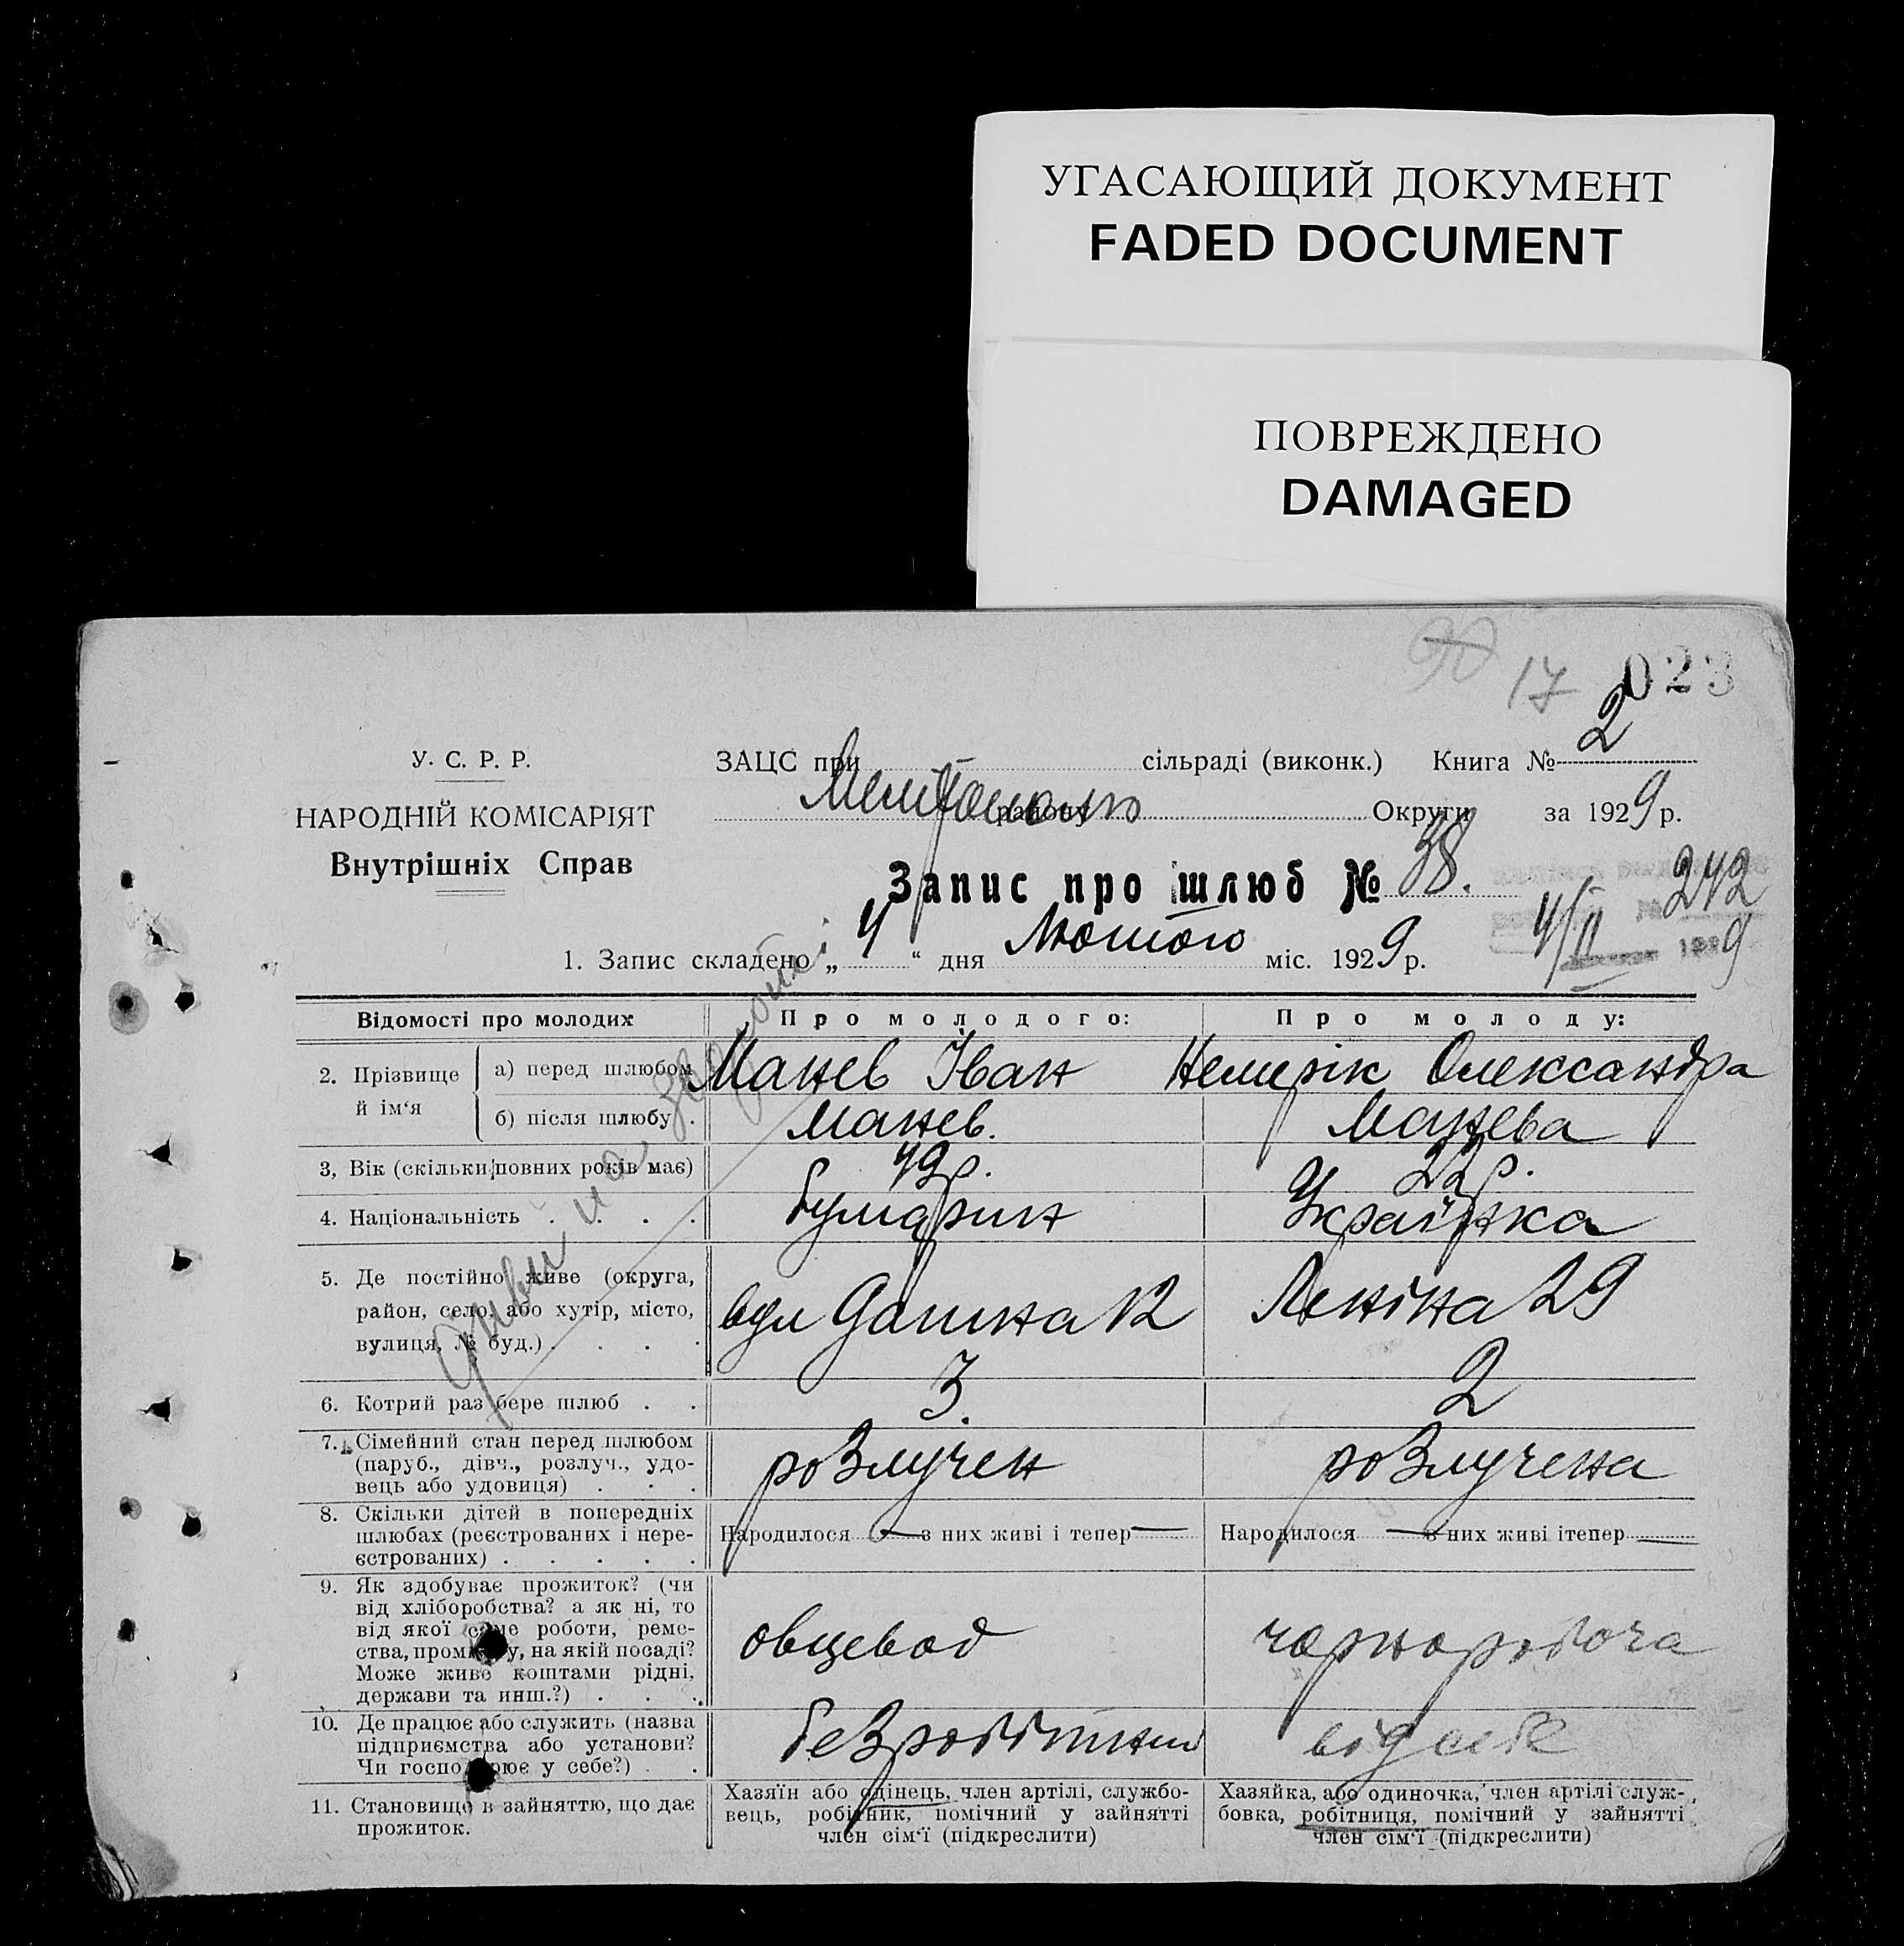 УГАСАЮЩИЙ ДОКУМЕНТ
FADED DOCUMENT
ПОВРЕЖДЕНО
DAMAGED
90 17 023
У. С. Р. Р.
ЗАЦС при сільраді (виконк.) Книга № 2
НАРОДНІЙ КОМІСАРІЯТ
району Округи за 1929 р.
Внутрішніх Справ
Запис про шлюб № 38.
242
4/II 1929
1. Запис складено „ 4 “ дня Лютого міс. 1929 р.
Відомості про молодих
Про молодого:
Про молоду:
2. Прізвище й ім‘я
а) перед шлюбом
Манев Іван
Немерік Олександра
б) після шлюбу .
Манев.
Манева
3, Вік (скільки повних років має)
49 р.
22 р.
4. Національність . . . .
булгарин
Українка
5. Де постійно живе (округа,
район, село, або хутір, місто,
вулиця, № буд.) . . . .
вул 12
Леніна 29
6. Котрий раз бере шлюб . .
3.
2
7. Сімейний стан перед шлюбом
(паруб., дівч., розлуч., удо-
вець або удовиця) . . .
розлучен
розлучена
8. Скільки дітей в попередніх
шлюбах (реєстрованих і нере-
єстрованих) . . . . .
Народилося — з них живі і тепер —
Народилося — з них живі ітепер —
9. Як здобуває прожиток? (чи
від хліборобства? а як ні, то
від якої саме роботи, реме-
ства, промислу, на якій посаді?
Може живе коштами рідні,
держави та инш.?) . . .
овцевод
чорноробоча
10. Де працює або служить (назва
підприємства або установи?
Чи господарює у себе?) . .
безробітний
11. Становище в зайняттю, що дає
прожиток.
Хазяїн або одінець, член артілі, службо-
вець, робітник, помічний у зайнятті
член сім‘ї (підкреслити)
Хазяйка, або одиночка, член артілі служ-
бовка, робітниця, помічний у зайнятті
член сім‘ї (підкреслити)
Диви на звороті